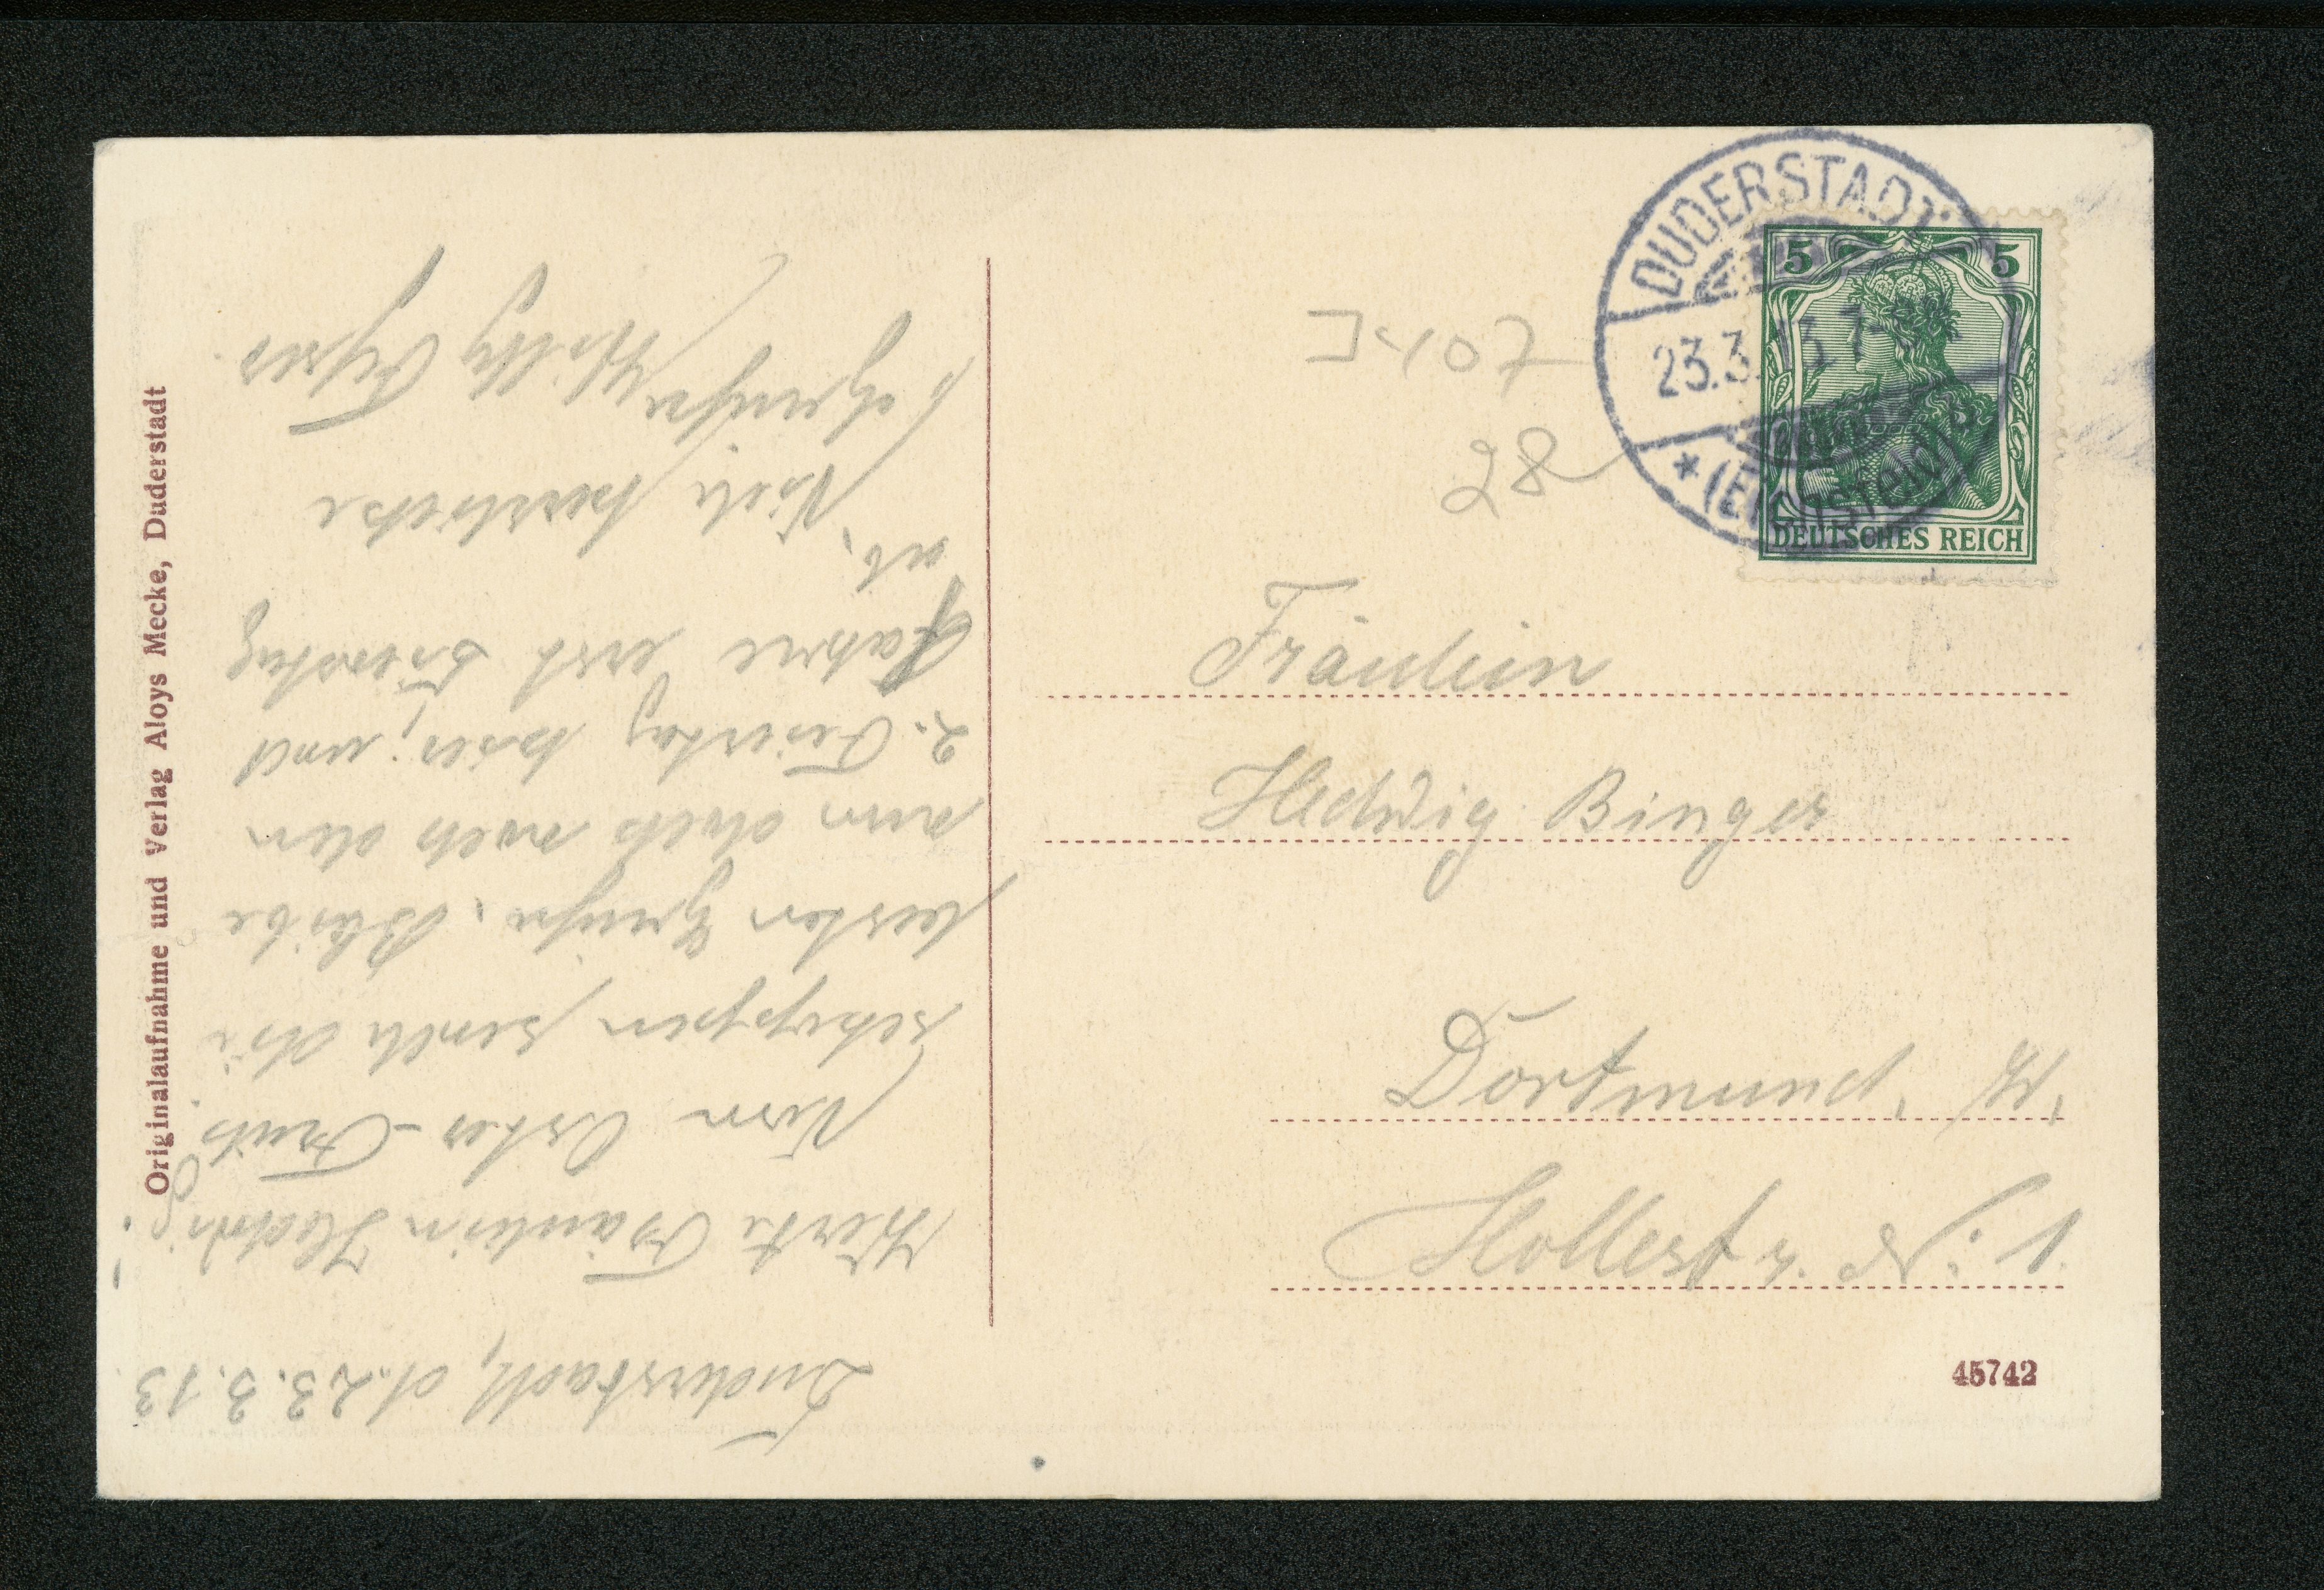 DUDERSTADT
23.3.13.7
* (Eichsfeld)
5 5
DEUTSCHES REICH
28
Fräulein
Hedwig Binger
Dortmund i/W.
45742
Originalaufnahme und Verlag Aloys Mecke, Duderstadt
Duderstadt, d. 23.3.13
Werte Fräulein Hedwig!
Vom Oster-
schoppen sende die
besten Grüße. Bleibe
nun doch noch den
2. Feiertag hier, und
fahre erst Dienstag
ab. Viele herzliche
Grüße Willy